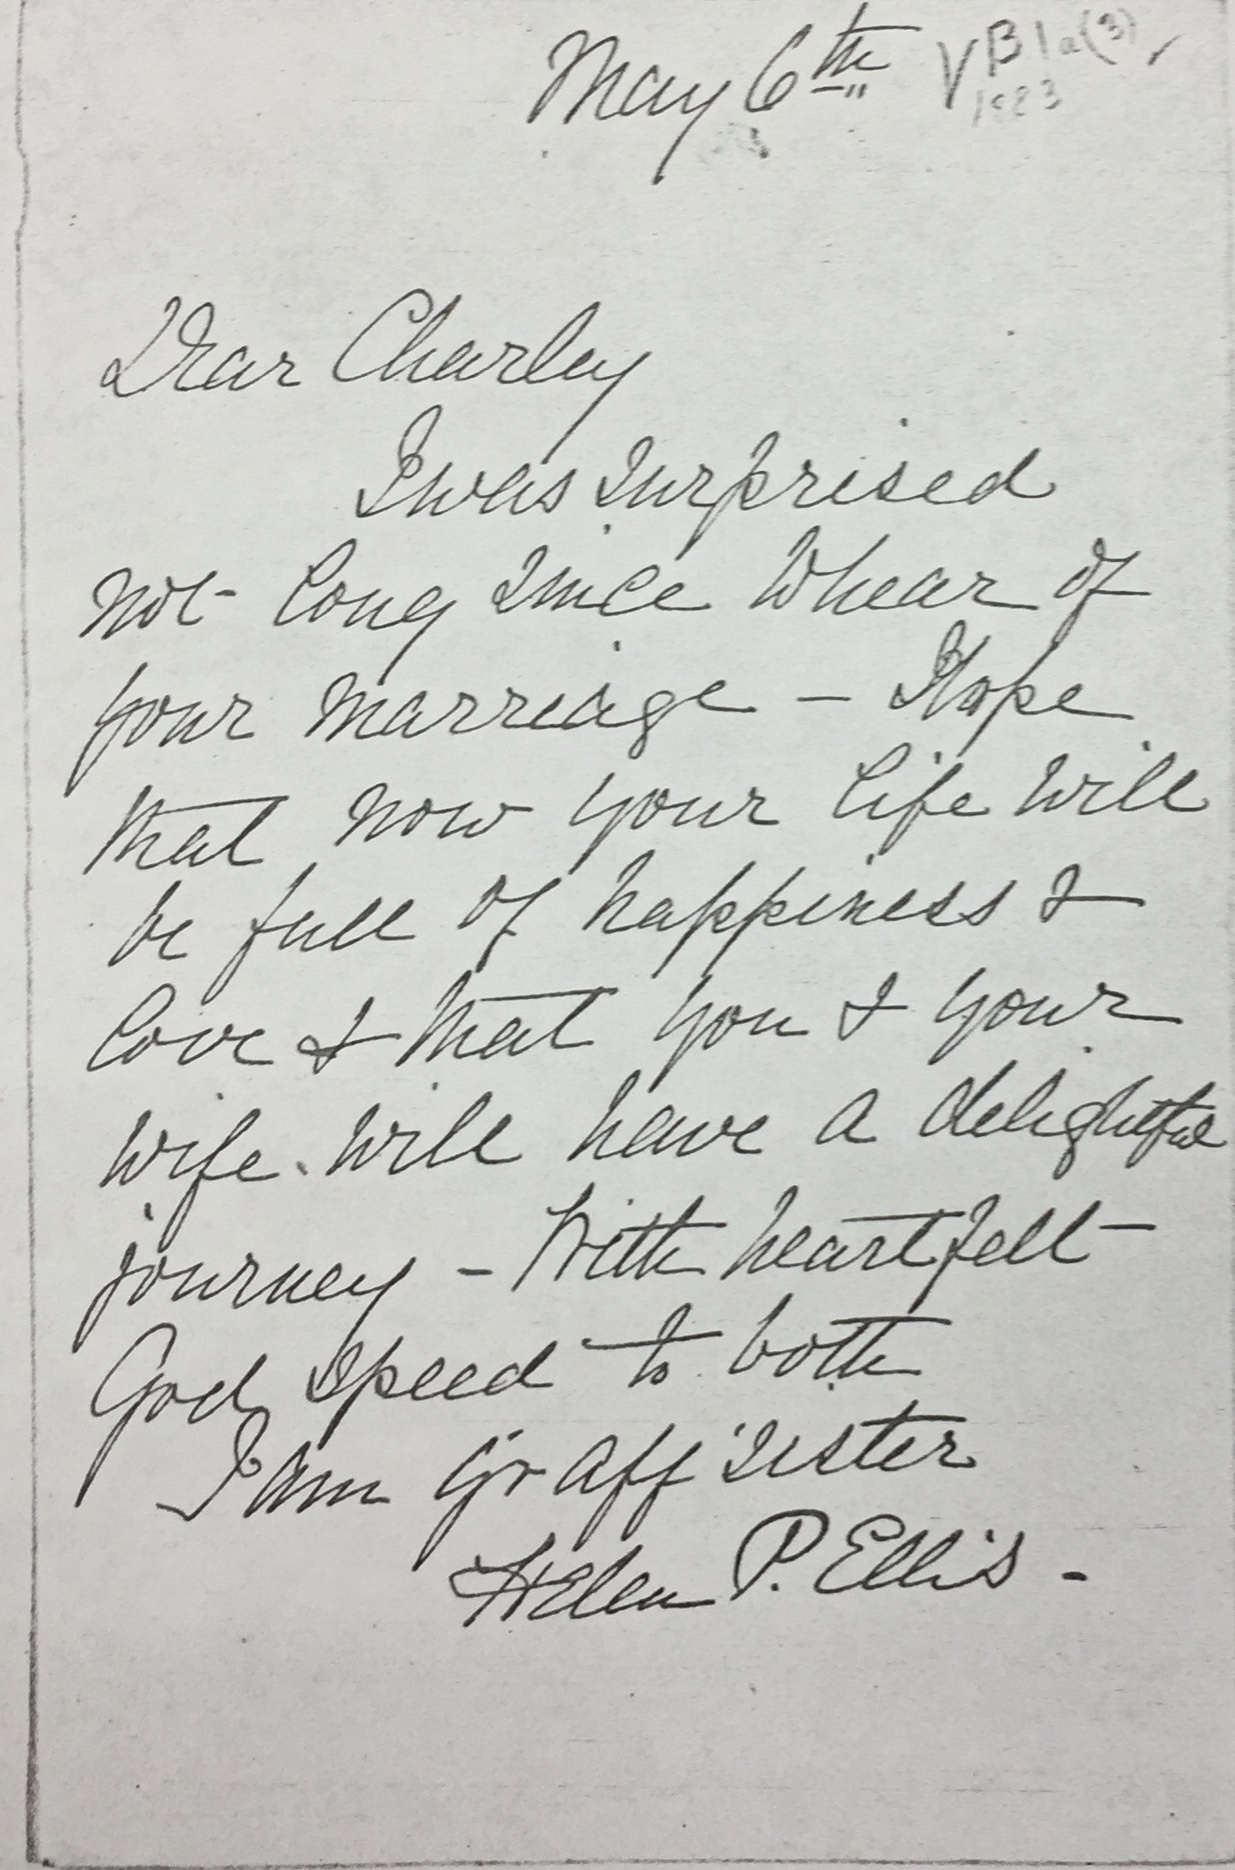 May 6th VB1a(3)
1883
Dear Charley
I was surprised
not long since to hear of
your marriage - I hope
that now your life will
be full of happiness &
love & that you & your
wife will have a delightful
journey - With heartfelt
God speed to both
I am yr aff sister
Helen P. Ellis -